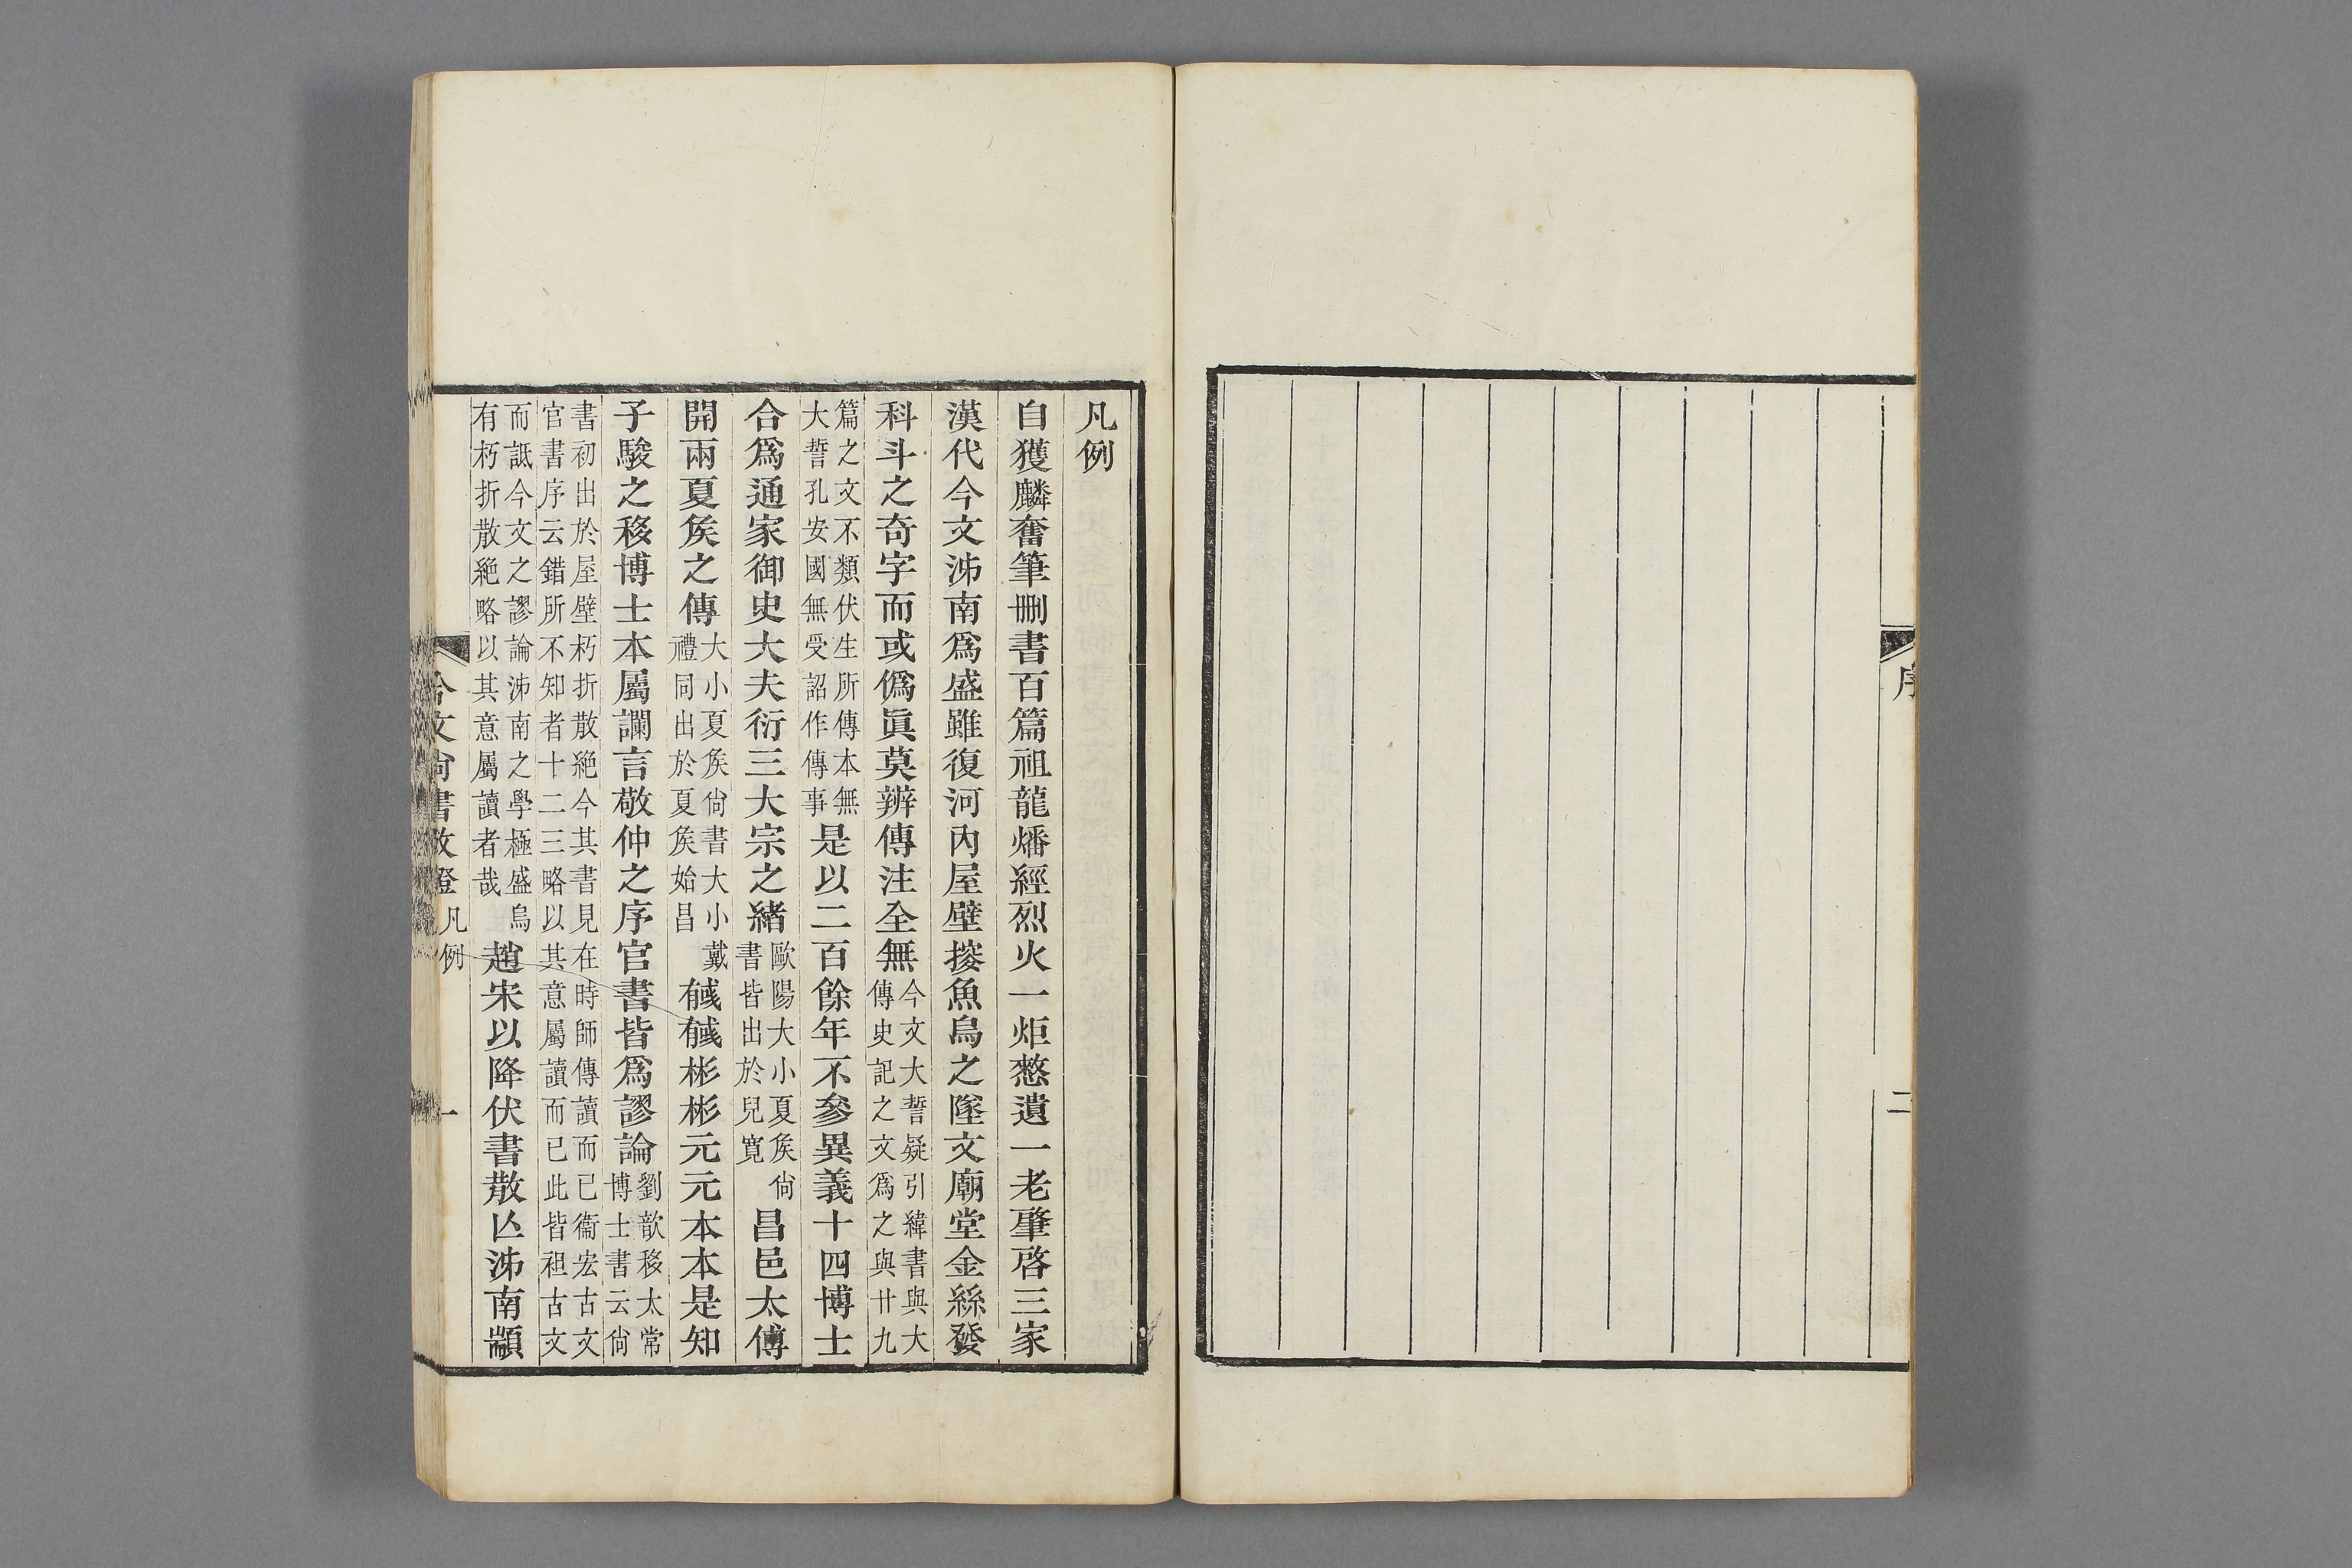 序
二
凡例
自獲麟奮筆刪書百篇祖龍燔經烈火一炬憖遺一老肇啓三家
漢代今文泲南爲盛雖復河內屋壁掞魚烏之墜文廟堂金絲發
科斗之奇字而或僞眞莫辨傳注全無今文大誓疑引緯書與大
傳史記之文爲之與廿九
篇之文不類伏生所傳本無
大誓孔安國無受詔作傳事是以二百餘年不參異義十四博士
合爲通家御史大夫衍三大宗之緒歐陽大小夏矦尙
書皆出於兒寬昌邑太傅
開兩夏矦之傳大小夏矦尙書大小戴
禮同出於夏矦始昌戫戫彬彬元元本本是知
子駿之移博士本屬讕言敬仲之序官書皆爲謬論劉歆移太常
博士書云尙
書初出於屋壁朽折散絕今其書見在時師傳讀而已衞宏古文
官書序云錯所不知者十二三略以其意屬讀而已此皆袒古文
而詆今文之謬論泲南之學極盛烏
有朽折散絕略以其意屬讀者哉趙宋以降伏書散亾泲南顓
今文尙書攷證
凡例
一